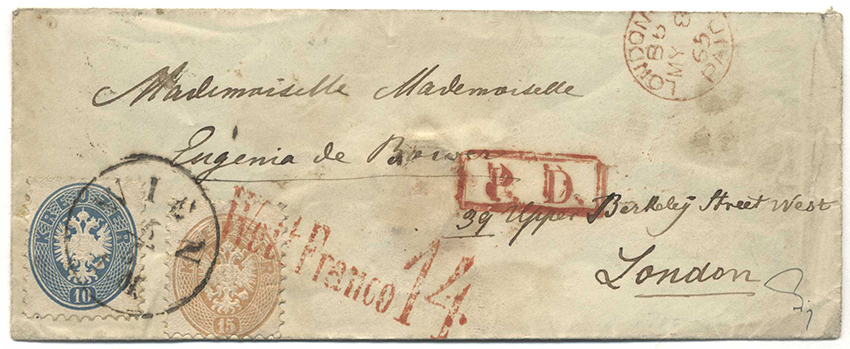 LONDON
8 5
MY 8
65
PAID
Mademoiselle Mademoiselle
Eugenia de
P. D.
39 Upper Berkeley Street West
London
WIEN
KREUZER
10
15
Franco
14